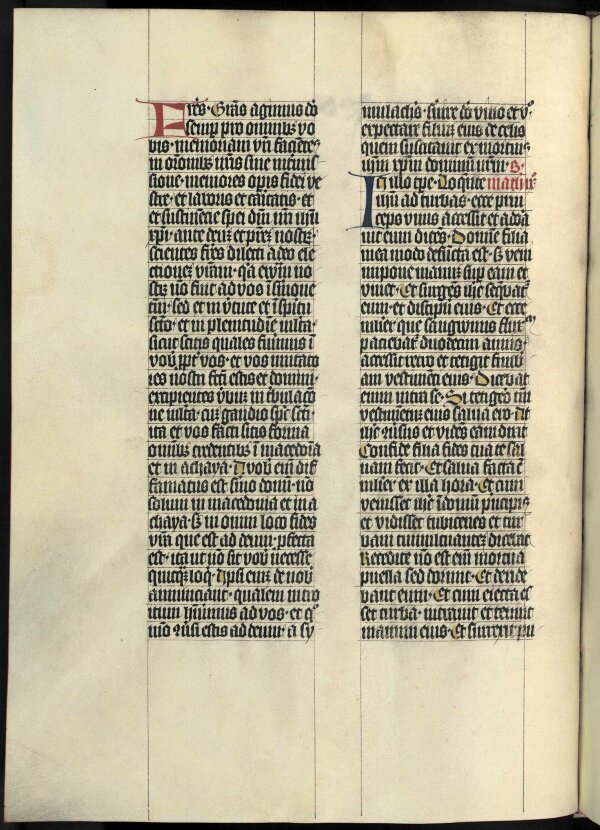 Fres. Gras agimus do
semp pro omnibus vo
bis. memoriam vri facietes
in orationibus nris sine intermis
sione. memores operis fidei ve
stre. et laboris et caritatis. et
et sustinetie spei dni nri ihu
xpi. ante deum et prem nostrum.
scientes fres dilecti a deo ele
ctionem vram. qa ewm no
strum no fuit ad vos i smone
tm. sed et in vtute et i spiritu
scto. et in plenitudie multa.
sicut scitis quales fuimus i
vob ppt vos. et vos imitato
res nostri fcti estis et domini.
excipientes vbum in tribulaco
ne multa. cum gaudio spc scti.
ita et vos facti sitis forma
omnibus credentibus i macedoia
et in achaya. A vob em dif
famatus est smo domi. no
solum in macedonia et in a
chaya. sz in omni loco fides
vra que est ad deum. pfecta
est. ita ut no sit vob necesse
quicquam loq. Ipsi eni de nob
annunciant. qualem intro
itum habuimus ad vos. et qo
mo conversi estis ad deum. a sy
mulachris. svire do vivo et vo.
expectare filium eius de celis
quem suscitavit ex mortuis
ihm xpm dominum nrm. S.
In illo tpe. Loquete matheus
ihu ad turbas. ecce prin
ceps unus accessit et adora
uit eum dices. Domine filia
mea modo defucta est. sz veni
impone manum sup eam et
vivet. Et surges ihc sequebat
eum. et discipli eius. Et ecce
mulier que sanguinis fluxum
patiebat duodecim annis.
accessit retro et tetigit fimbri
am vestimeti eius. Dicebat
enim intra se. Si tetigero tm
vestimetum eius salva ero. At
ihc conversus et vides eam dixit
Confide filia fides tua te sal
uam fecit. Et salva facta e
mulier ex illa hora. Et cum
venisset ihc i domum principis
et vidisset tubicenes et tur
bam tumultuantez dicebat
Recedite no est em mortua
puella sed dormit. Et deride
bant eum. Et cum eiecta es
set turba. intravit et tenuit
manum eius. Et surrexit pu